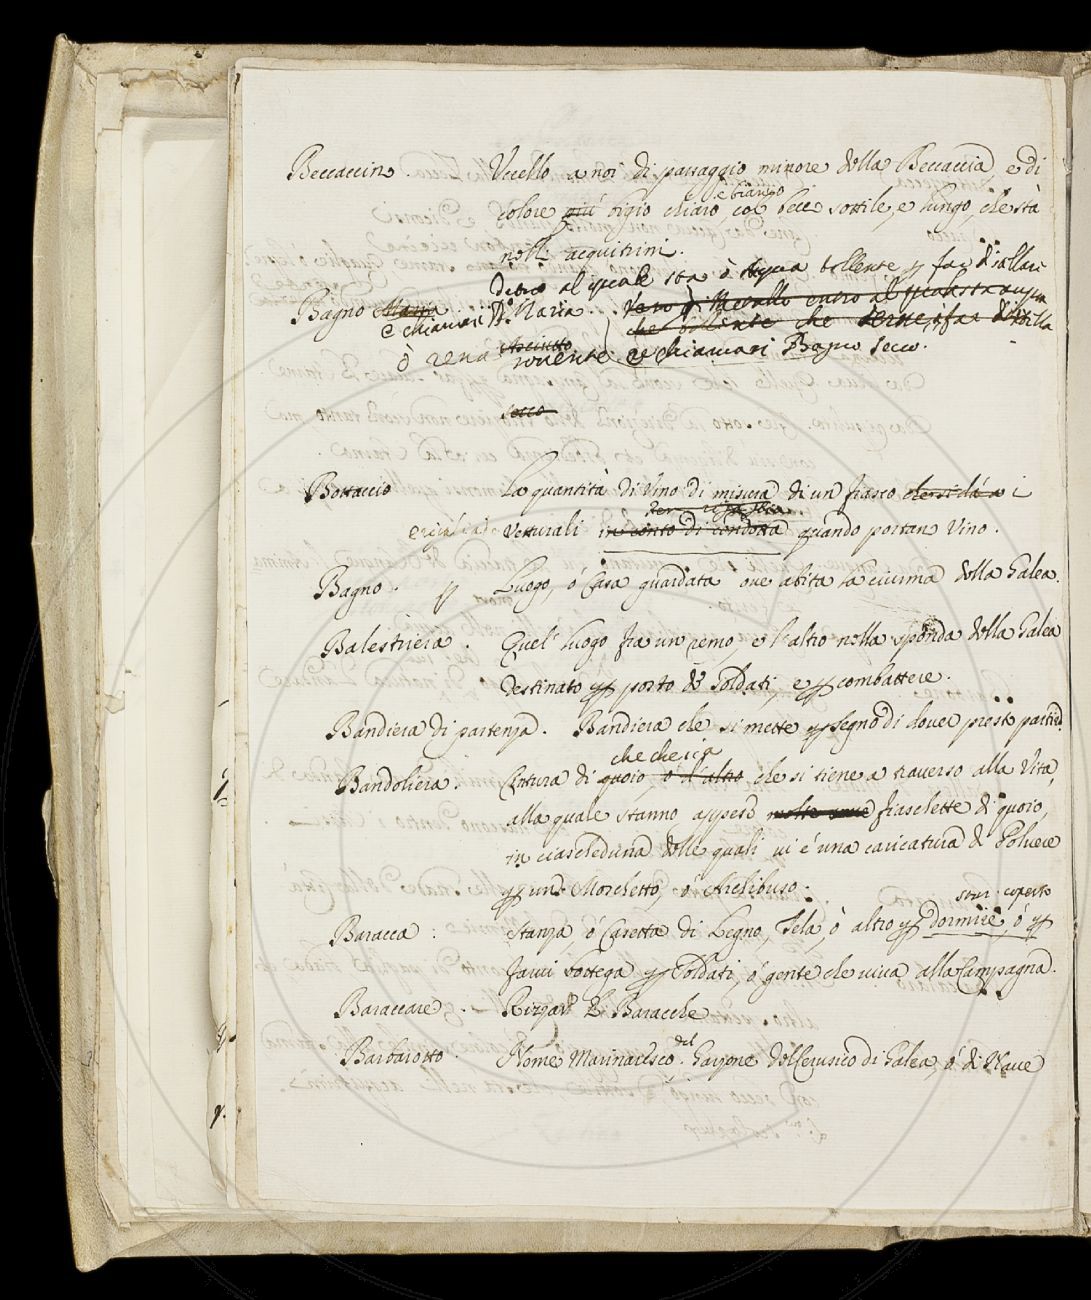 Beccaccino. Uccello a noi di passaggio minore della Beccaccia, e di
e bianco
colore più bigio chiaro, col becco sottile, e lungo, che stà
nelli acquitrini.
dentro al quale sta ò acqua bollente p far distillare
Bagno Maria D.º Maria. Vaso di Metallo entro al quale sta acqua
e chiamasi che bollente che serve p far distilla
ò rena Asciutto rovente e chiamasi Bagno Secco.
secco
Bottaccio La quantità di Vino di misura di un fiasco che si dà a i
Vetturali in conto di condotta quando portan Vino.
Bagno. Luogo, ò Casa guardata ove abita la ciurma della Galea.
Balestriera. Quel luogo fra un remo, e l'altro nella sponda della Galea
destinato p posto de Soldati, e p combattere.
Bandiera di partenza. Bandiera che si mette p segno di dover presto partire.
che che sia
Bandoliera. Cintura di quoio ò d'altro che si tiene a traverso alla Vita,
alla quale stanno appese molte fiaschette di quoio,
in ciascheduna delle quali vi è una caricatura di Polvere
p un Moschetto, ò Archibuso.
star coperto
Baracca: Stanza, ò Casetta di Legno, Tela, ò altro p dormire, ò p
farvi bottega p Soldati, ò gente che viva alla Campagna.
Baraccare. Rizzar le Baracche
del
Barbarotto. Nome Marinaresco. Garzone del Cerusico di Galea, ò di Nave